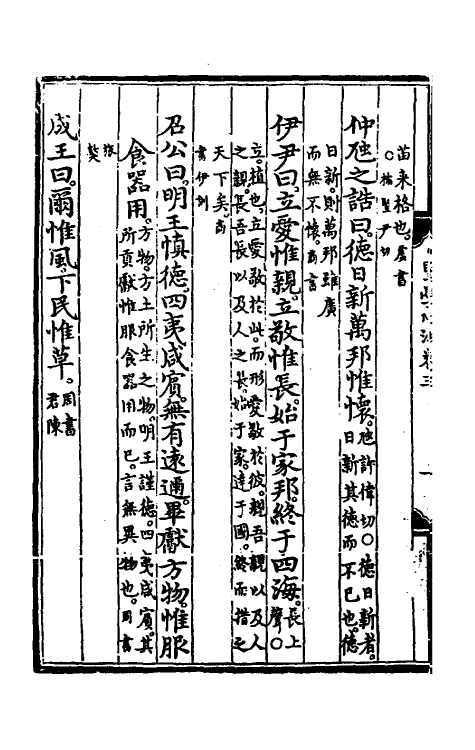 苗来格也。虞書
○楯竪尹切
仲虺之誥曰。德日新萬邦惟懷。虺許偉切○德日新者。
日新其德而不已也。德
日新。則萬邦雖廣
而無不懷。商書
伊尹曰。立愛惟親。立敬惟長。始于家邦。終于四海。長上
聲○
立。植也。立愛敬於此。而形愛敬於彼。親吾親以及人
之親。長吾長以及人之長。始于家。達于國。終而措之
天下矣。商
書伊訓
召公曰。明王慎德。四夷咸賓。無有遠邇。畢獻方物。惟服
食器用。方物。方土所生之物。明王謹德。四夷咸賓。其
所貢獻惟服食器用而已。言無異物也。周書
旅
獒
成王曰。爾惟風。下民惟草。周書
君陳
聖學心法卷三
一